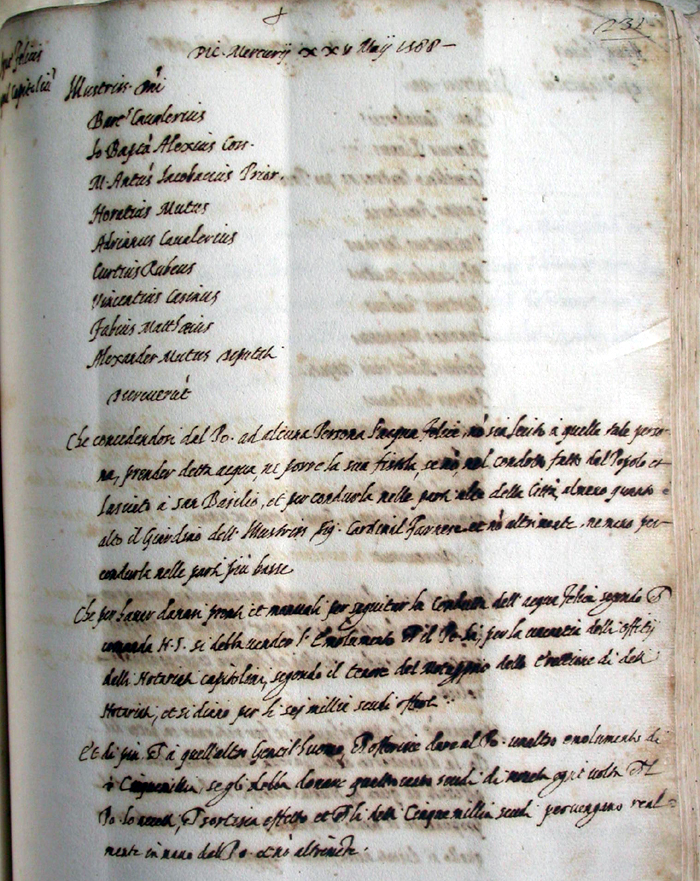 231
Die Mercurij xxv Maij 1588
Illustres Dni
Bart. Cavalerius
Io Bapta Alexius Cons.
M. Antus Iacobacius Prior.
Horatius Mutus
Adrianus Cavalerius
Curtius Rubeus
Vincentius Cesinus
Fabius Matthæius
Alexander Mutus Deputati
Decreverūt
Che concedendosi dal Po. ad alcuna Persona l'acqua felice, nō sia lecito a quella tale perso-
na, prender detta acqua, ne porre la sua fistola, se nō, nel condotto fatto dal Popolo et
lasciato a san Basilio, et per condurla nelle parti alte della Città, almeno quanto è
alto il Giardino dell' Illustriss. Sig. Cardinal Farnese et nō altrimente, ne meno per
condurla nelle parti più basse.
Che per haver danari pronti et manuali per seguitar la Condutta dell' acqua felice, secondo
comanda N. S. si debba vender l' Emolumento il Po. per la delli offitij
delli Notariati capitolini, segondo il tenore del della di detti
Notariati, et si diano per li sei millia scudi offerti
Et di più, a quell'altro Gentil'huomo, offerisce dare al Po. un altro emolumento di
Cinquemillia, se gli debba donare quattrocento scudi di moneta ogni volta
Po. lo accetti, sortisca effetto et detti Cinque millia scudi pervengano real-
mente in mano del Po. et nō altrimēte.